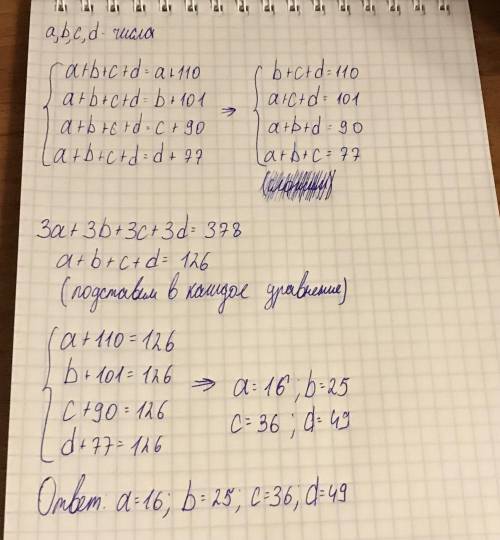 a,b,c,d - числа
a+b+c+d=a+110
a+b+c+d=b+101
a+b+c+d=c+90
a+b+c+d=d+77
⇒
b+c+d=110
a+c+d=101
a+b+d=90
a+b+c=77
3a+3b+3c+3d=378
a+b+c+d=126
(подставим в каждое уравнение)
a+110=126
b+101=126
c+90=126
d+77=126
⇒ a=16; b=25
c=36; d=49
Ответ. a=16; b=25; c=36; d=49